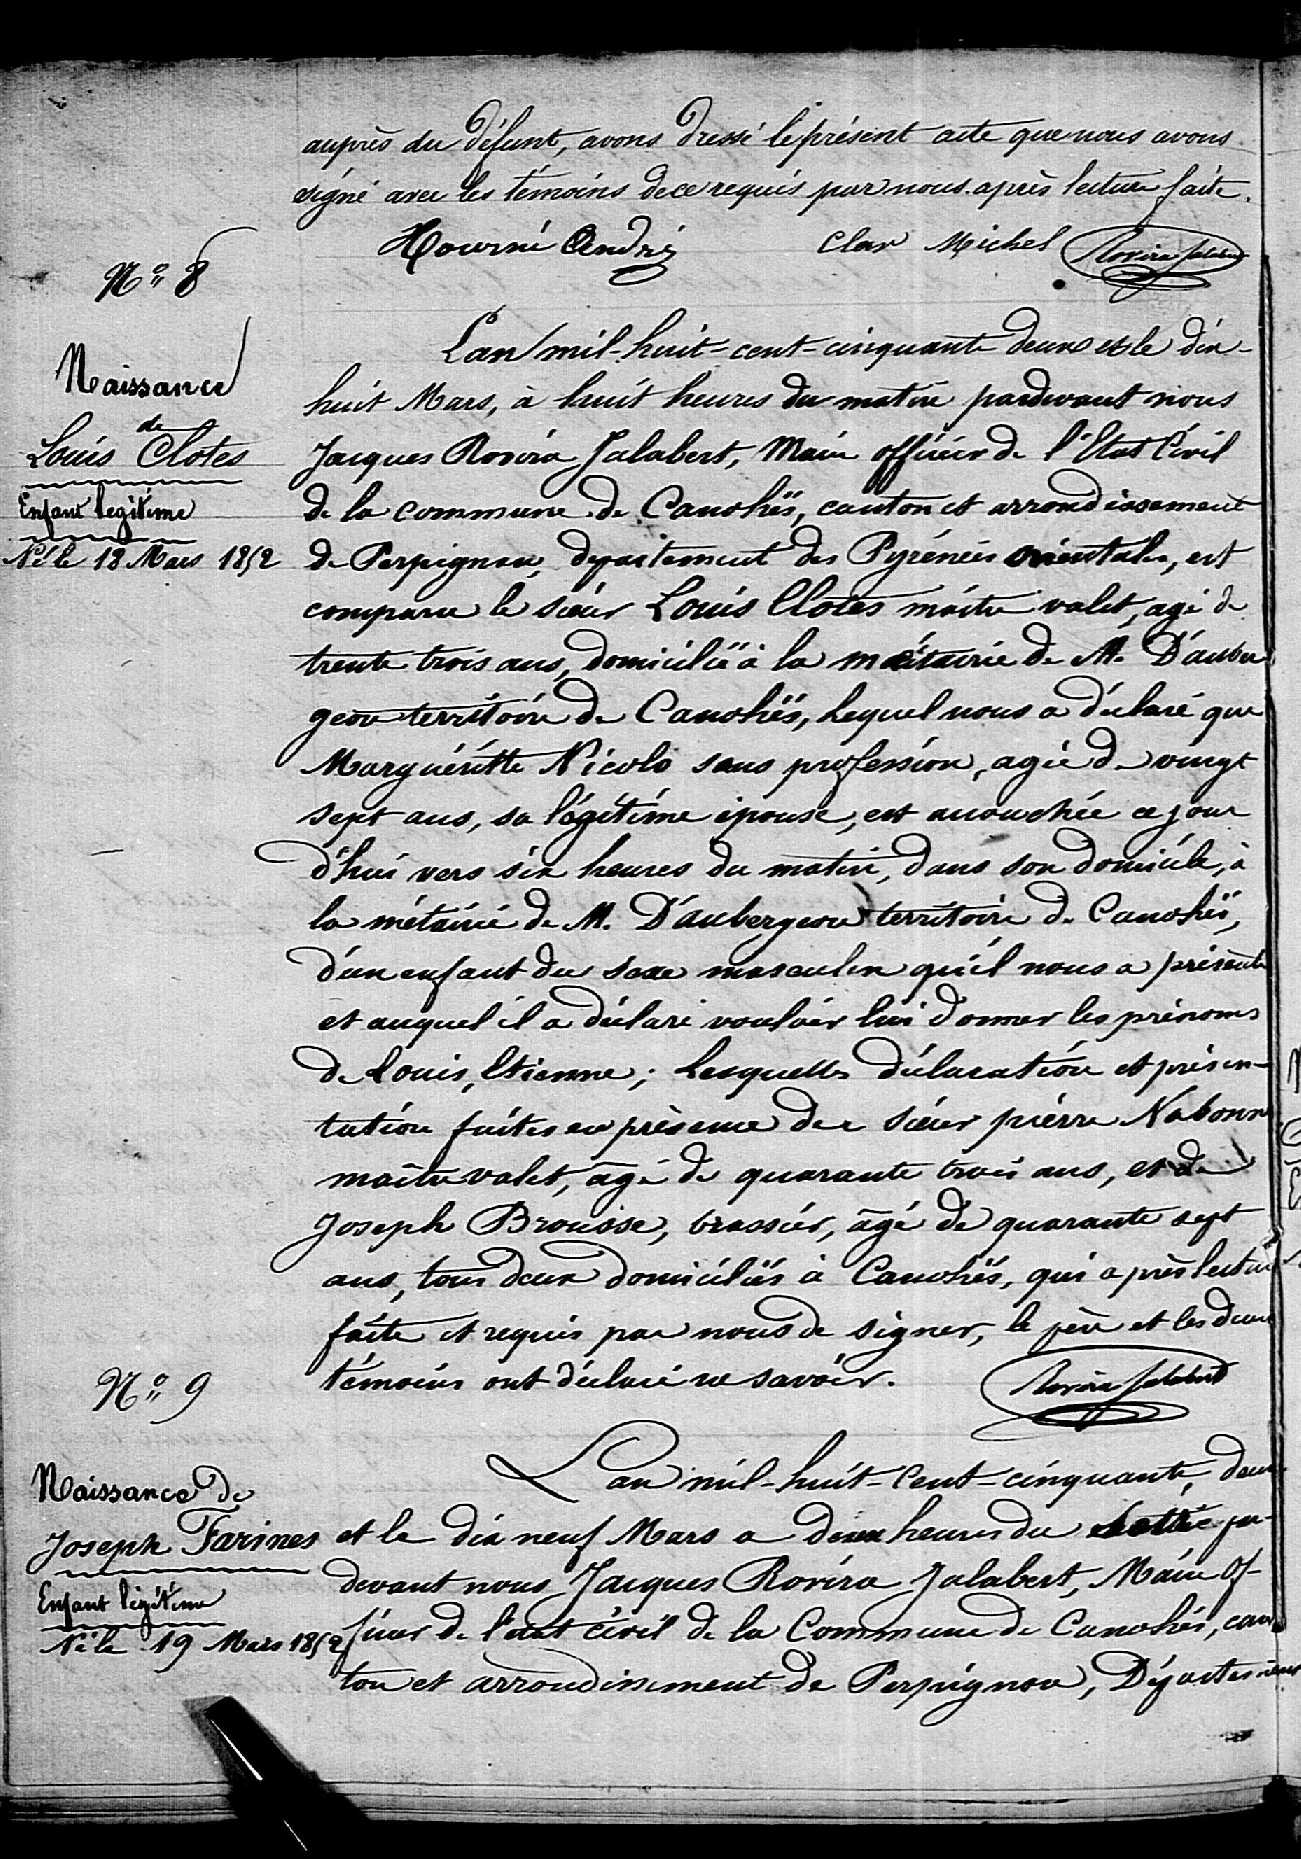 auprès du défunt, avons dressé le présent acte que nous avons
signé avec les témoins de ce requis par nous après lecture faite.
Hourné André Clar Michel Rovira Jalabert
N° 8
Naissance
de
Louis Clotes
Enfant legitime
Né le 18 Mars 1852
L'an mil-huit-cent-cinquante deux et le dix-
huit Mars, à huit heures du matin pardevant nous
Jacques Rovira Jalabert, Maire officier de l'Etat Civil
de la commune de Canohès, canton et arrondissement
de Perpignan, département des Pyrénées orientales, est
comparu le sieur Louis Clotes maître valet, agé de
trente trois ans, domicilié à la métairie de M. D'auber
geon territoire de Canohès, lequel nous a déclaré que
Marguéritte Nicolo sans profession, agée de vingt
sept ans, sa légitime épouse, est accouchée ce jour
d'hui vers six heures du matin, dans son domicile, à
la métairie de M. D'aubergeon territoire de Canohès,
d'un enfant du sexe masculin qu'il nous a présenté
et auquel il a déclaré vouloir lui donner les prénoms
de Louis, Etienne; Lesquelles déclaration et présen-
tation faites en présence de sieur pierre Nabonne
maître valet, âgé de quarante trois ans, et de
Joseph Brousse, brassier, âgé de quarante sept
ans, tous deux domiciliés à Canohès, qui après lecture
faite et requis par nous de signer, le père et les deux
témoins ont déclaré ne savoir. Rovira Jalabert
N° 9
Naissance de
Joseph Farines
Enfant légitime
Né le 19 Mars 1852
L'an mil-huit-cent-cinquante, deux
et le dix neuf Mars a deux heures du par-
devant nous Jacques Rovira Jalabert, Maire of-
ficier de l'état civil de la Commune de Canohès, can
ton et arrondissement de Perpignan, Département